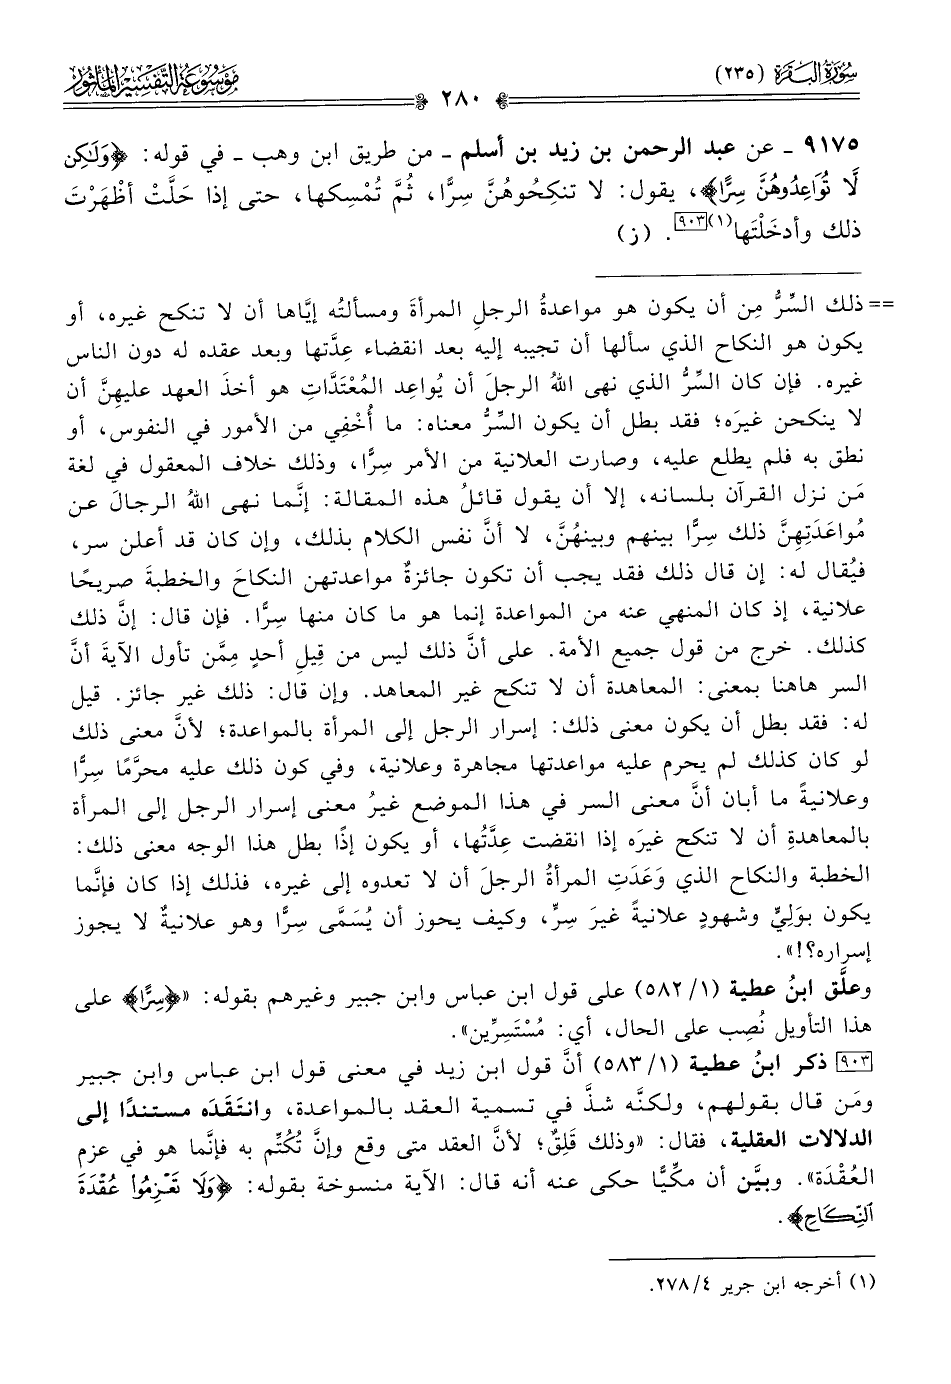 سُورَةُ البَقَرَةِ (٢٣٥)
٢٨٠
مَوْسُوعَة التَّفْسِيرِ المَأْثُور
٩١٧٥ ـ عن عبد الرحمن بن زيد بن أسلم ـ من طريق ابن وهب ـ في قوله: ﴿وَلَٰكِن
لَّا تُوَاعِدُوهُنَّ سِرًّا﴾، يقول: لا تنكِحُوهُنَّ سِرًّا، ثُمَّ تُمْسِكها، حتى إذا حَلَّتْ أظْهَرْتَ
ذلك وأدخَلْتَها(١)[٩٠٣]. (ز)
== ذلك السِّرُّ مِن أن يكون هو مواعدةُ الرجلِ المرأةَ ومسألتُه إيَّاها أن لا تنكح غيره، أو
يكون هو النكاح الذي سألها أن تجيبه إليه بعد انقضاء عِدَّتها وبعد عقده له دون الناس
غيره. فإن كان السِّرُّ الذي نهى اللهُ الرجلَ أن يُواعِد المُعْتَدَّاتِ هو أخذَ العهد عليهِنَّ أن
لا ينكحن غيرَه؛ فقد بطل أن يكون السِّرُّ معناه: ما أُخْفِي من الأمور في النفوس، أو
نطق به فلم يطلع عليه، وصارت العلانية من الأمر سِرًّا، وذلك خلاف المعقول في لغة
مَن نزل القرآن بلسانه، إلا أن يقول قائلُ هذه المقالة: إنَّما نهى اللهُ الرجالَ عن
مُواعَدَتِهِنَّ ذلك سِرًّا بينهم وبينهُنَّ، لا أنَّ نفس الكلام بذلك، وإن كان قد أعلن سر،
فيُقال له: إن قال ذلك فقد يجب أن تكون جائزةٌ مواعدتهن النكاحَ والخطبةَ صريحًا
علانية، إذ كان المنهي عنه من المواعدة إنما هو ما كان منها سِرًّا. فإن قال: إنَّ ذلك
كذلك. خرج من قول جميع الأمة. على أنَّ ذلك ليس من قِيلِ أحدٍ مِمَّن تأول الآيةَ أنَّ
السر هاهنا بمعنى: المعاهدة أن لا تنكح غير المعاهد. وإن قال: ذلك غير جائز. قيل
له: فقد بطل أن يكون معنى ذلك: إسرار الرجل إلى المرأة بالمواعدة؛ لأنَّ معنى ذلك
لو كان كذلك لم يحرم عليه مواعدتها مجاهرة وعلانية، وفي كون ذلك عليه محرَّمًا سِرًّا
وعلانيةً ما أبان أنَّ معنى السر في هذا الموضع غيرُ معنى إسرار الرجل إلى المرأة
بالمعاهدةِ أن لا تنكح غيرَه إذا انقضت عِدَّتُها، أو يكون إذًا بطل هذا الوجه معنى ذلك:
الخطبة والنكاح الذي وَعَدَتِ المرأةُ الرجلَ أن لا تعدوه إلى غيره، فذلك إذا كان فإنَّما
يكون بوَلِيٍّ وشهودٍ علانيةً غيرَ سِرٍّ، وكيف يحوز أن يُسَمَّى سِرًّا وهو علانيةٌ لا يجوز
إسراره؟!».
وعلَّق ابنُ عطية (١/ ٥٨٢) على قول ابن عباس وابن جبير وغيرهم بقوله: «﴿سِرًّا﴾ على
هذا التأويل نُصِب على الحال، أي: مُسْتَسِرِّين».
[٩٠٣] ذكر ابنُ عطية (١/ ٥٨٣) أنَّ قول ابن زيد في معنى قول ابن عباس وابن جبير
ومَن قال بقولهم، ولكنَّه شذَّ في تسمية العقد بالمواعدة، وانتَقَدَه مستندًا إلى
الدلالات العقلية، فقال: «وذلك قَلِقٌ؛ لأنَّ العقد متى وقع وإنَّ تُكُتِّم به فإنَّما هو في عزم
العُقْدَة». وبيَّن أن مكِّيًّا حكى عنه أنه قال: الآية منسوخة بقوله: ﴿وَلَا تَعْزِمُوا۟ عُقْدَةَ
ٱلنِّكَاحِ﴾.
(١) أخرجه ابن جرير ٤/ ٢٧٨.